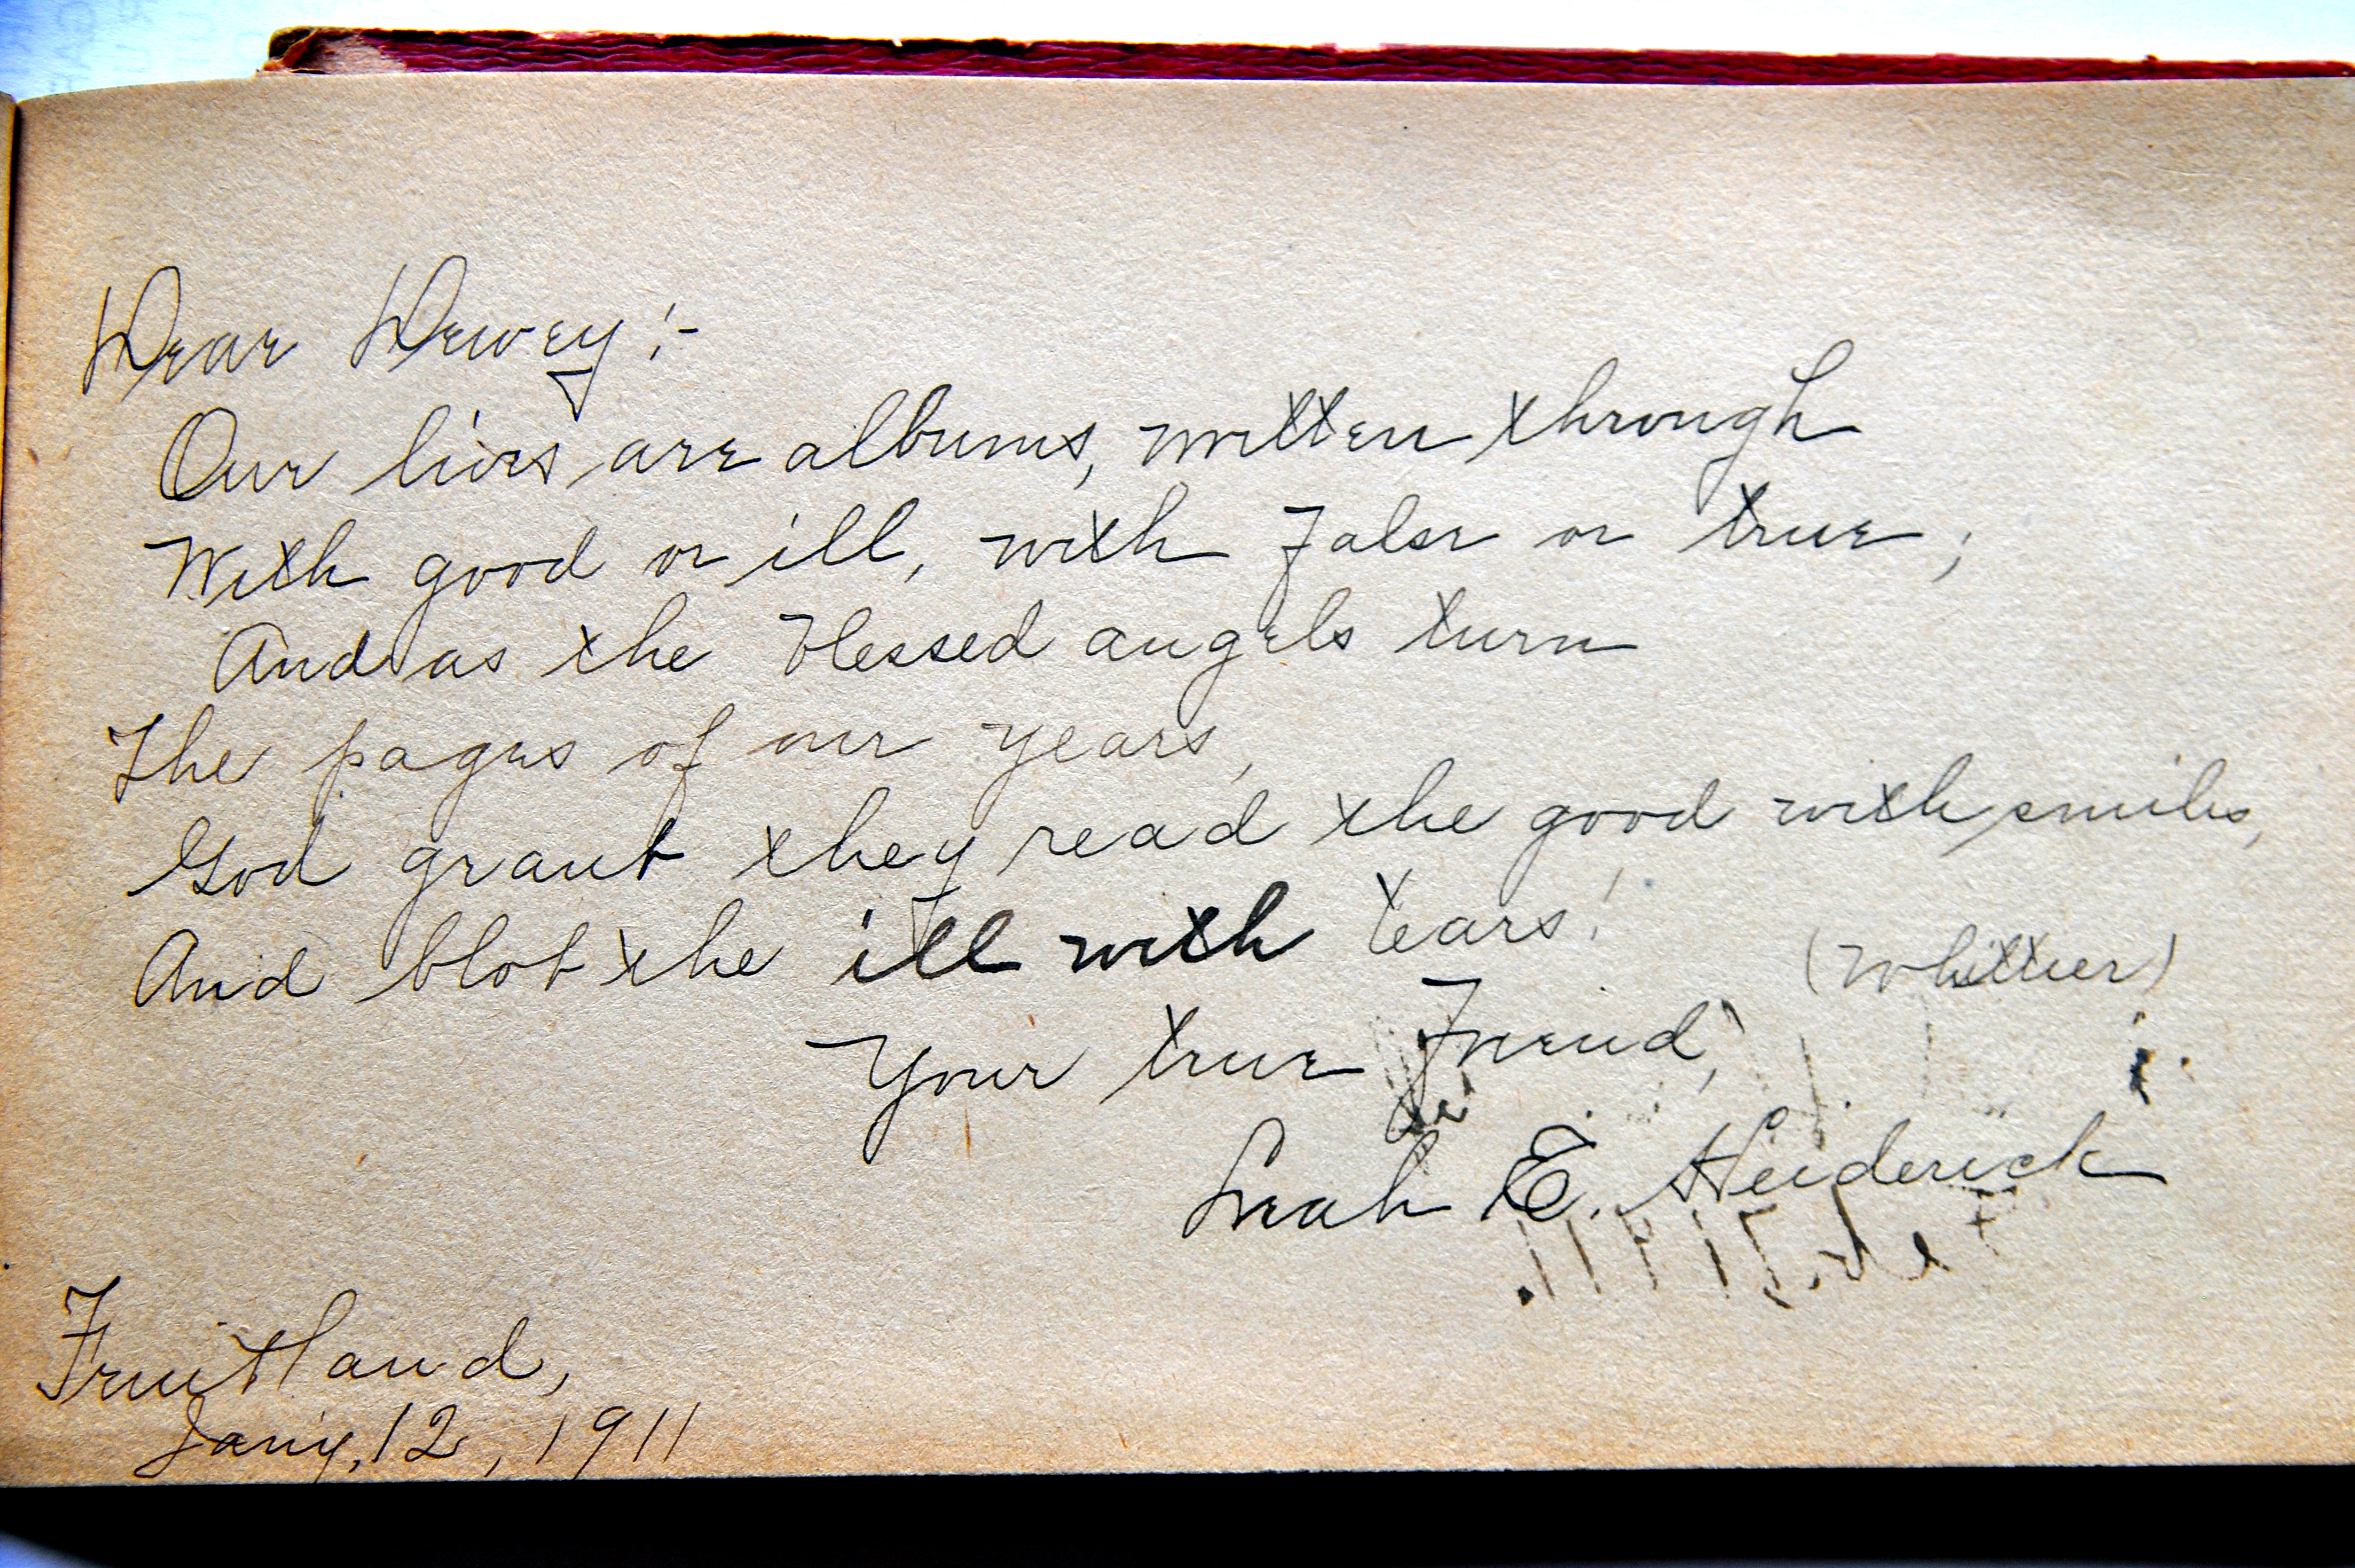 Dear Dewey:-
Our lives are albums, written through
With good or ill, with false or true;
And as the blessed angels turn
The pages of our years,
God grant they read the good with smiles,
And blot the ill with tears!
(Whittier)
Your true Friend,
Leah E. Heiderick
Fruitland,
Jany, 12, 1911